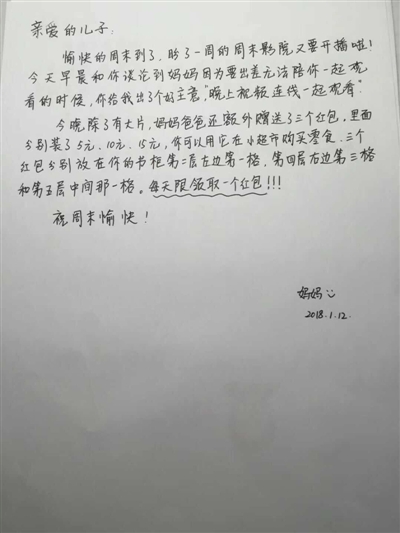 亲爱的儿子:
愉快的周末到了,盼了一周的周末影院又要开播啦!
今天早晨和你谈论到妈妈因为要出差无法陪你一起观
看的时候,你给我出了个好主意,"晚上视频连线一起观看".
今晚除了有大片,妈妈爸爸还额外赠送了三个红包,里面
分别装了5元、10元、15元,你可以用它在小超市购买零食.三个
红包分别放在你的书柜第二层左边第一格,第四层右边第三格
和第五层中间那一格。每天限领取一个红包!!!
祝周末愉快!
妈妈
2018.1.12.